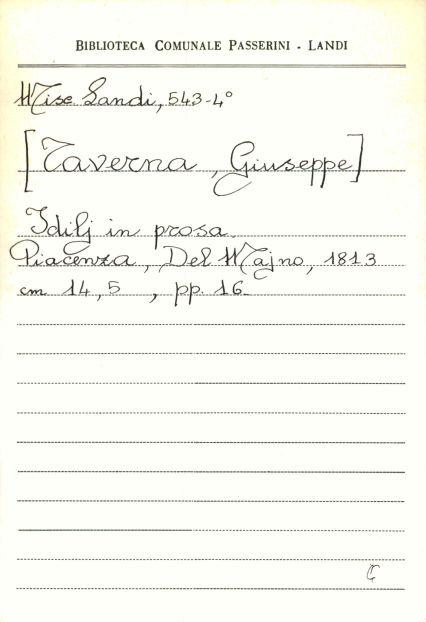 BIBLIOTECA COMUNALE PASSERINI - LANDI
Misc. Landi, 543-4°
[Taverna, Giuseppe]
Idilj in prosa.
Piacenza, Del Majno, 1813
cm 14,5 , pp. 16.